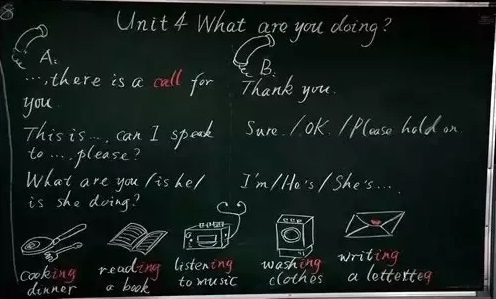 Unit 4 What are you doing?
A:
..., there is a call for
you.
This is ..., can I speak
to ..., please?
What are you / is he /
is she doing?
B:
Thank you.
Sure. / OK. / Please hold on.
I'm / He's / She's ....
cooking
dinner
reading
a book
listening
to music
washing
clothes
writing
a lettetteq